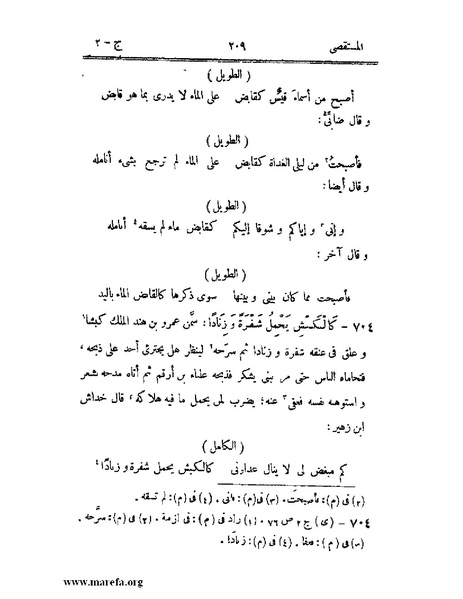 المستقصى ٢٠٩ ج - ٢
( الطويل )
أصبح من أسماء قيس كقابض على الماء لا يدرى بما هو قابض
و قال ضابئ:
( الطويل )
فأصبحت٢ من ليلى الغداة كقابض على الماء لم ترجع بشىء أنامله
و قال أيضا:
( الطويل )
و إنى٣ و إياكم و شوقا إليكم كقابض ماء لم يسقه٤ أنامله
و قال آخر:
( الطويل )
فأصبحت مما كان بينى و بينها سوى ذكرها كالقابض الماء باليد
٧٠٤ - كَالْكَبْشِ يَحْمِلُ شَفْرَةً وَ زِنَادًا: سمّن عمرو بن هند الملك كبشا
و علق فى عنقه شفرة و زنادا ثم سرّحه٢ لينظر هل يجترئ أحد على ذبحه،
فتحاماه الناس حتى مر ببنى يشكر فذبحه علباء بن أرقم ثم أتاه مدحه بشعر
و استوهبه نفسه فعفى٣ عنه؛ يضرب لمن يحمل ما فيه هلاكه، قال خداش
ابن زهير:
( الكامل )
كم مبغض لى لا ينال عداوتى كالكبش يحمل شفرة و زنادا٤
(٢) فى (م): فأصبحت. (٣) فى (م): فانى. (٤) فى (م): لم تسقه.
٧٠٤ - (ى) ج ٢ ص ٧٦. (١) زاد فى (م): فى ازمة. (٢) فى (م): سرّحه.
(٣) فى (م): فعفا. (٤) فى (م): زنادًا.
www.marefa.org